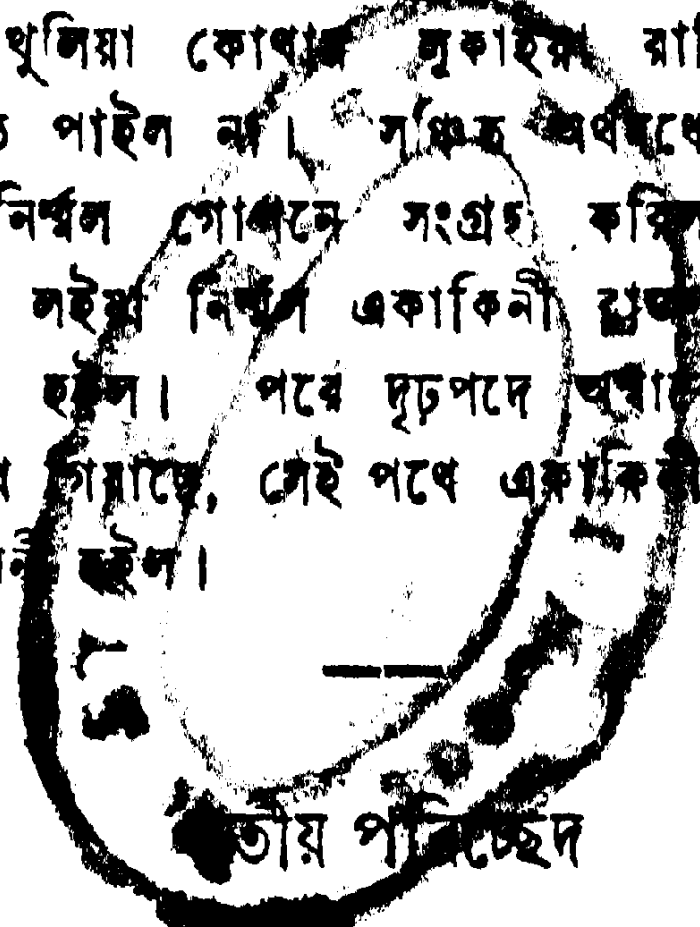 খুলিয়া কোথায় লুকাইয়া
পাইল না। সঞ্চিত অর্থমধ্যে
নির্ম্মল গোপনে সংগ্রহ করিল
লইয়া নির্ম্মল একাকিনী
হইল। পরে দৃঢ়পদে
গিয়াছে, সেই পথে একাকিনী
হইল।
পরিচ্ছেদ